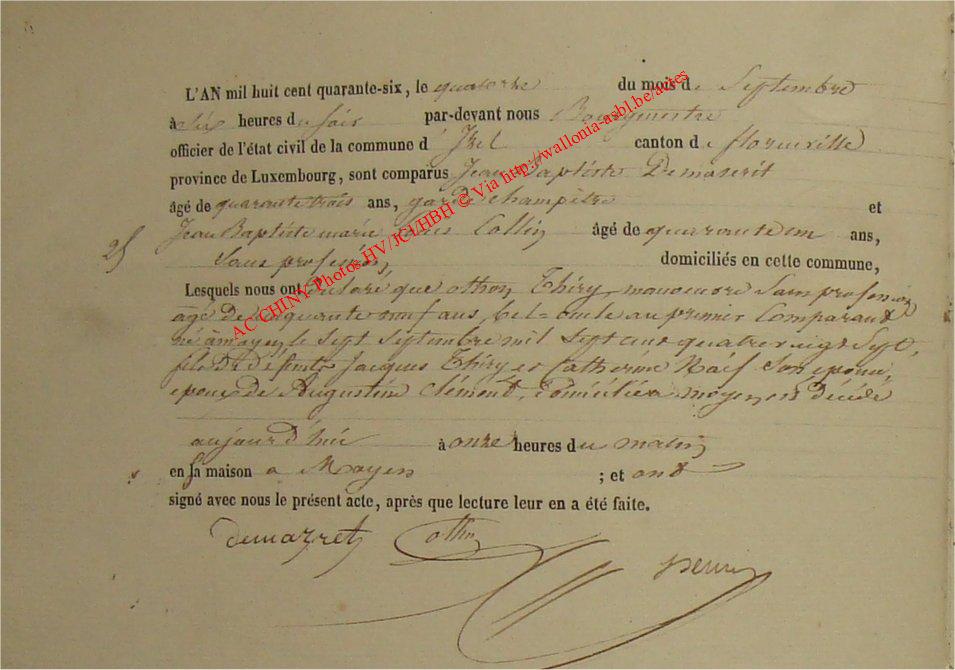 L'AN mil huit cent quarante-six, le quatorze du mois de Septembre
à six heures du soir par-devant nous Bourgmestre
officier de l'état civil de la commune d' Izel canton de florenville
province de Luxembourg, sont comparus Jean Baptiste Demaseret
âgé de quarante trois ans, garde champêtre et
Jean Baptiste marie Collin âgé de quarante un ans,
25
Sans profession, domiciliés en cette commune,
Lesquels nous ont déclaré que othon Thiry, manoeuvre Sans profession
agé de cinquante neuf ans, bel-oncle au premier Comparant
né à moyen le sept septembre mil sept cent quatre vingt sept,
fils de défunts Jacques Thiry et Catherine Naif son épouse,
époux de Augustine Clément, domicilié à moyen est décédé
aujourd'hui à onze heures du matin
en sa maison à Moyen ; et ont
signé avec nous le présent acte, après que lecture leur en a été faite.
demazret Collin
AC CHINY Photos HV/JCl/HBH © Via http://wallonia-asbl.be/actes